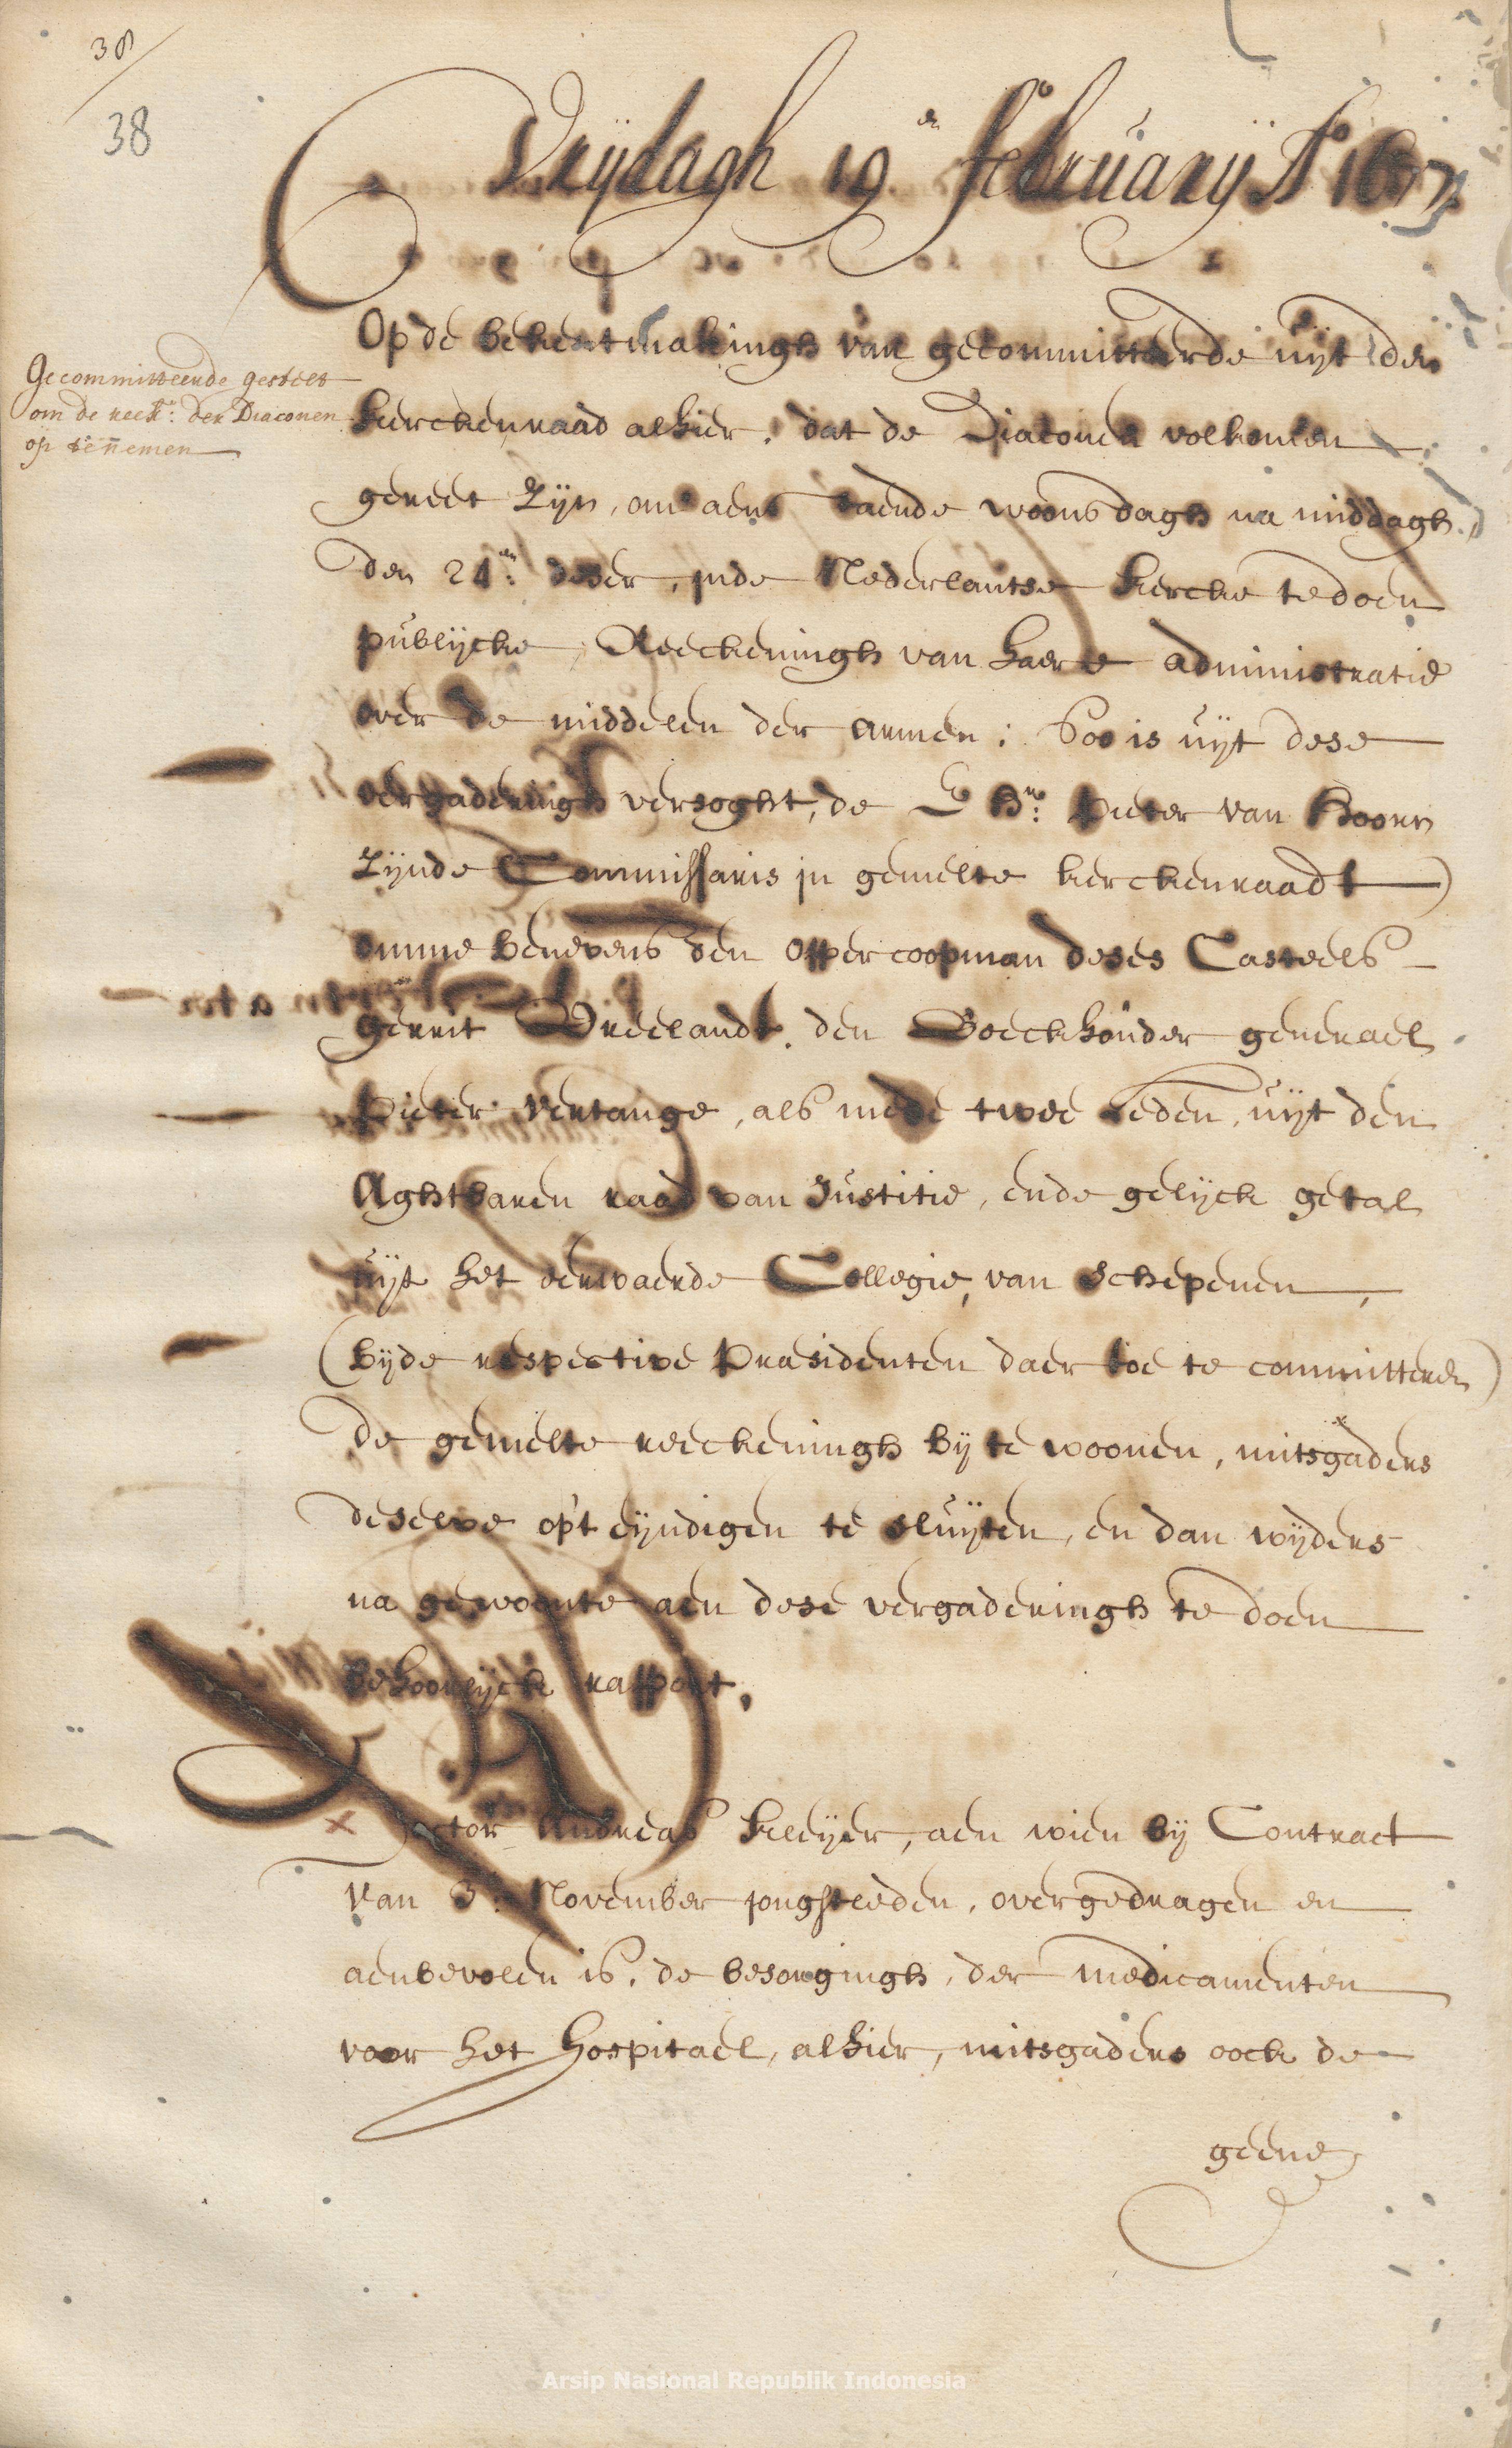 38
38
Vrijdagh 19.en februarij Ao 1677.
Gecommitteerde gestelt
om de reeck:e der Diaconen
op te nemen
Op de bekentmakingh van gecommitteerde uijt den
kerckenraad alhier, dat de Diaconen volkomen
gereet zijn, om aenstaende woonsdagh na middagh,
den 24.en deser, in de Nederlantse kercke te doen
publijcke Reeckeningh van haere administratie
over de middelen der armen; Soo is uijt dese
vergaderingh versoght, de E hr: Pieter van Hoorn
zijnde Commissaris in gemelte kerckenraadt
omme benevens den oppercoopman deses Casteels
gerrit Vreelandt, den Boeckhouder generael
Pieter Vertange, als mede twee Leden, uijt den
Aghtbaren raad van Justitie, ende gelijck getal
uijt het eerwaerde Collegie, van Schepenen,
(bijde respective Præsidenten daer toe te committeren)
de gemelte reeckeningh bij te woonen, mitsgaders
deselve op't eijndigen te sluijten, en dan wijders
na gewoonte aen dese vergaderingh te doen
behoorlijck rapport.
Doctor Andreas kleijer, aen wien bij Contract
van 3:en November jongstleden, overgedragen en
aenbevolen is, de besorgingh, der medicamenten
voor het Hospitael, alhier, mitsgaders oock de
geene
Arsip Nasional Republik Indonesia